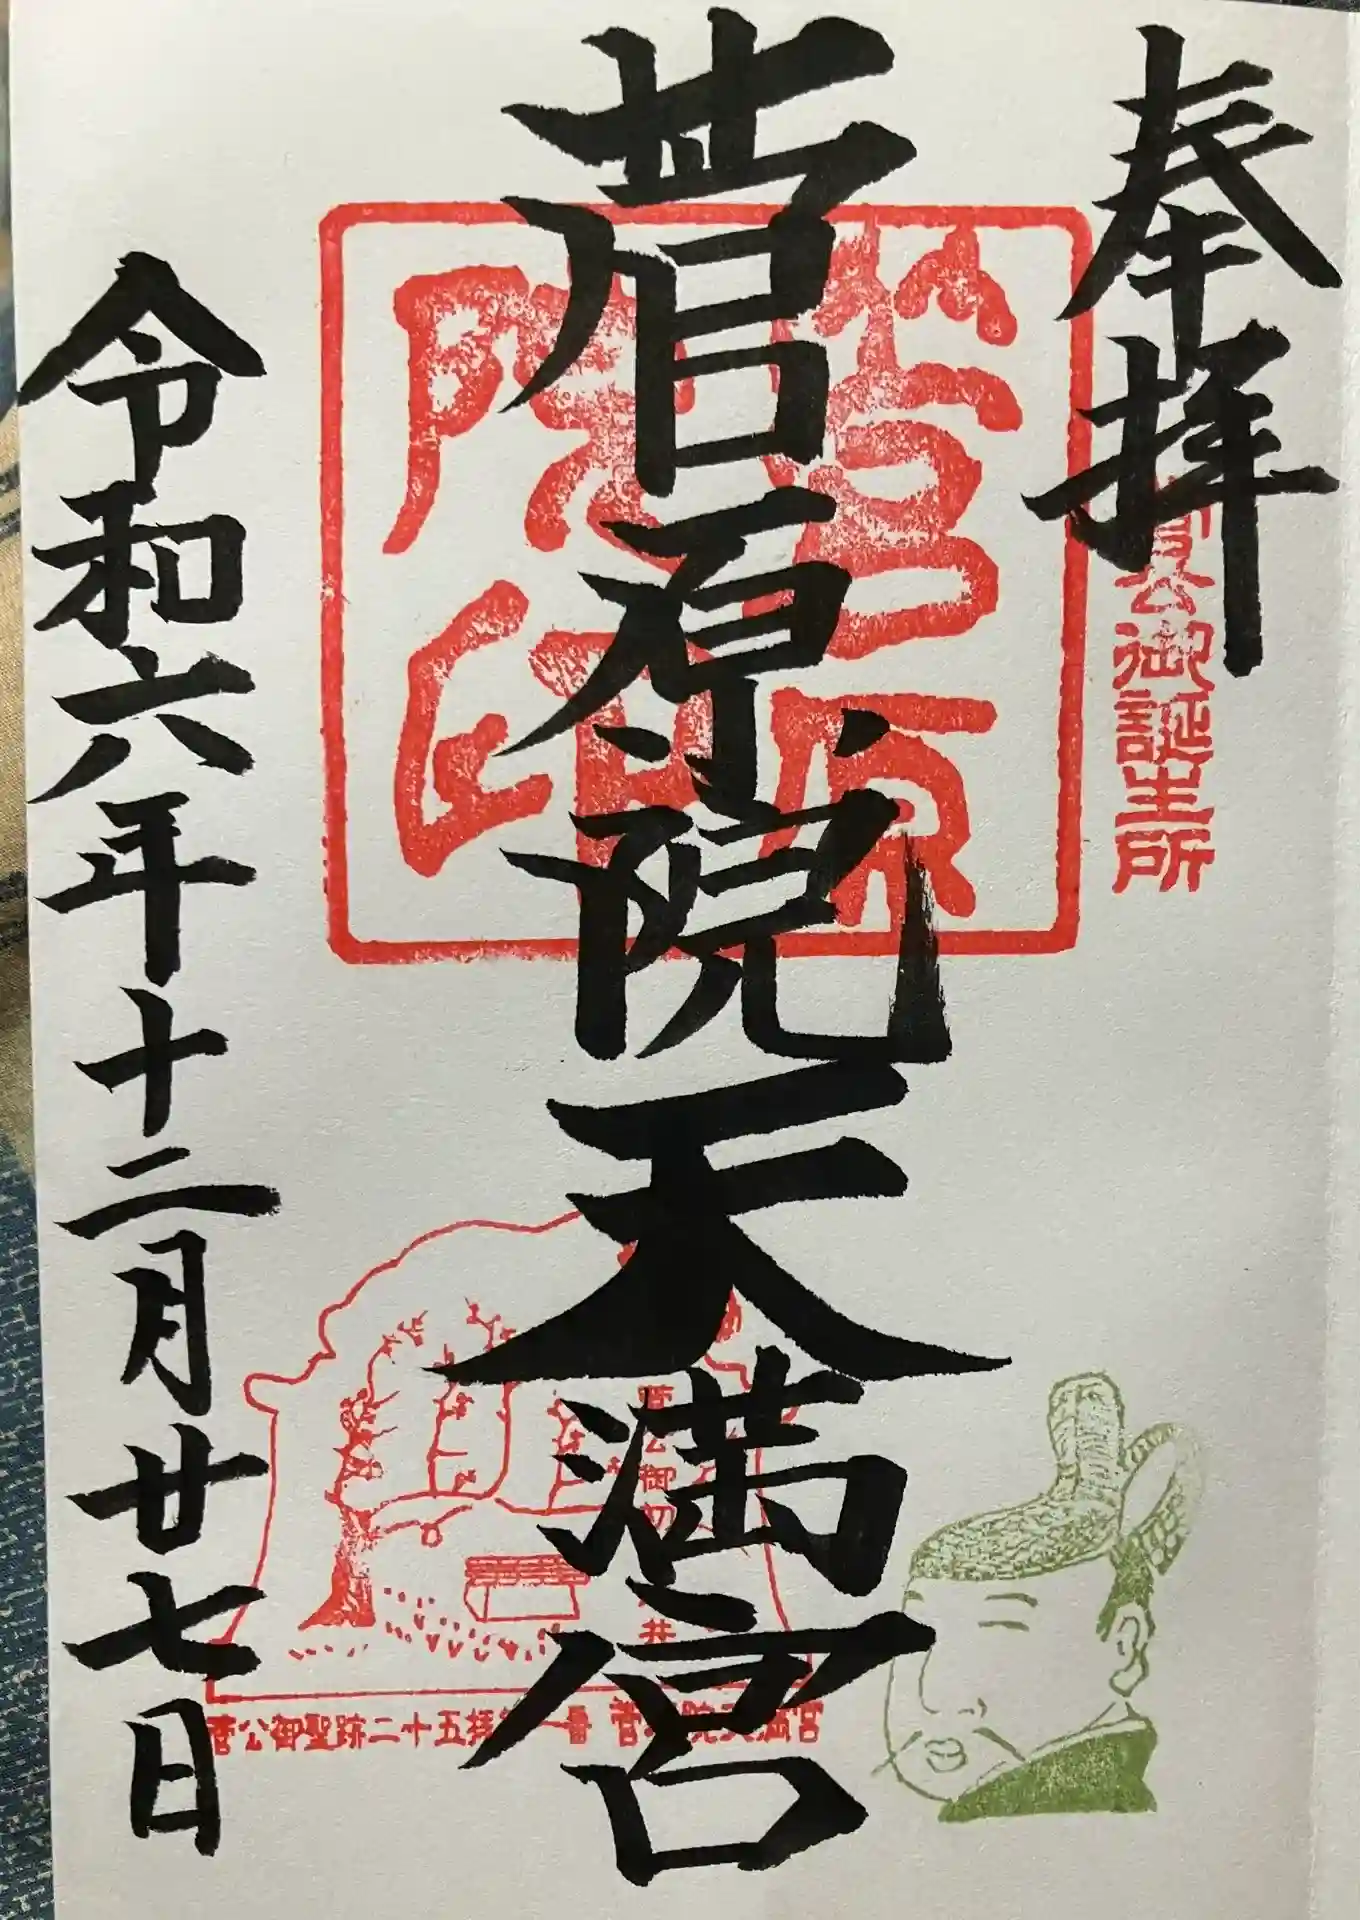 奉拝
菅公御誕生所
菅原院天満宮
菅原院印
令和六年十二月廿七日
菅公御初 井
菅公御聖跡二十五拝 一番 菅 院天満宮